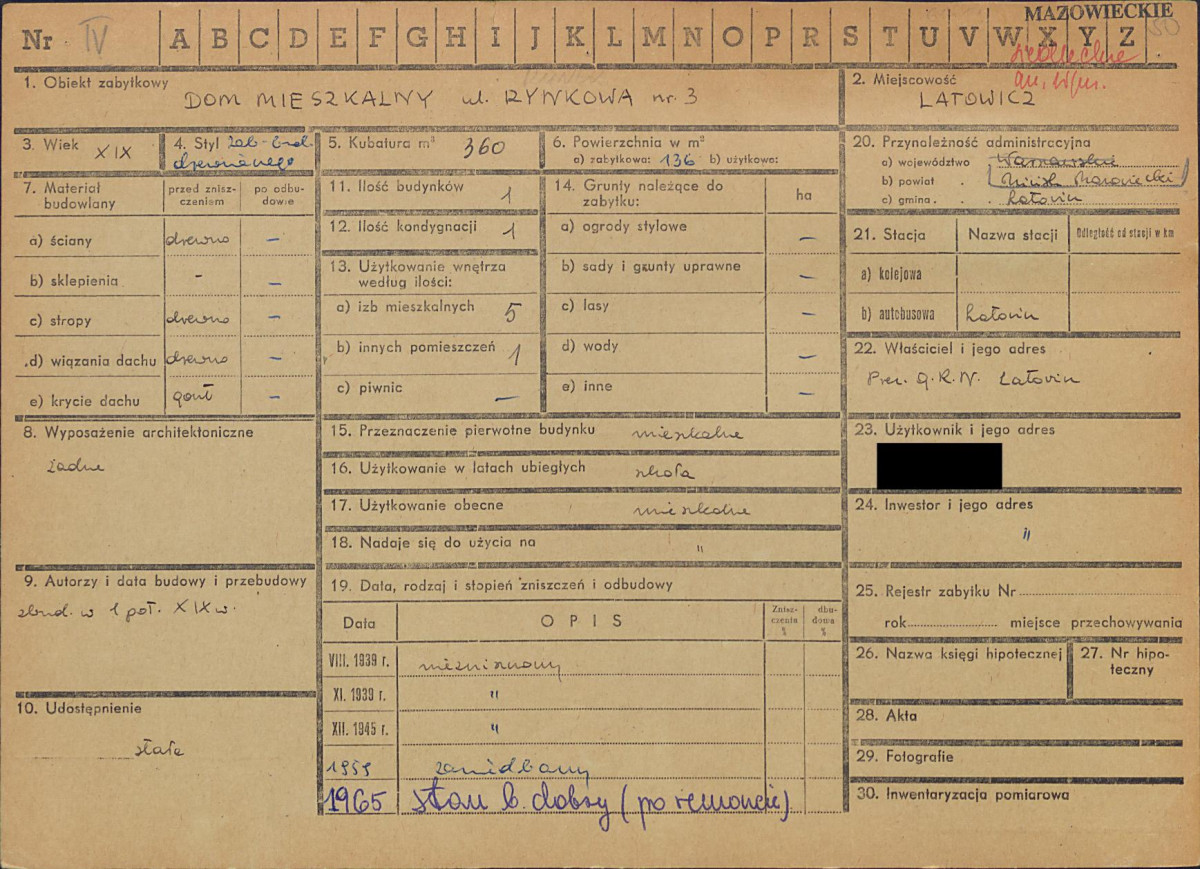 MAZOWIECKIE
Nr IV A B C D E F G H I J K L M N O P R S T U V W X Y Z
50
siedleckie
1. Obiekt zabytkowy
DOM MIESZKALNY ul. RYNKOWA nr. 3
2. Miejscowość
LATOWICZ
3. Wiek XIX
4. Styl zab. bud.
drewnianego
5. Kubatura m³ 360
6. Powierzchnia w m²
a) zabytkowa: 136 b) użytkowe:
7. Materiał budowlany
przed zniszczeniem
po odbudowie
a) ściany drewno –
b) sklepienia - –
c) stropy drewno –
d) wiązania dachu drewno –
e) krycie dachu gont –
8. Wyposażenie architektoniczne
żadne
9. Autorzy i data budowy i przebudowy
zbud. w 1 poł. XIX w.
10. Udostępnienie
stałe
11. Ilość budynków 1
12. Ilość kondygnacji 1
13. Użytkowanie wnętrza
według ilości:
a) izb mieszkalnych 5
b) innych pomieszczeń 1
c) piwnic –
14. Grunty należące do
zabytku:
ha
a) ogrody stylowe –
b) sady i grunty uprawne –
c) lasy –
d) wody –
e) inne –
15. Przeznaczenie pierwotne budynku mieszkalne
16. Użytkowanie w latach ubiegłych szkoła
17. Użytkowanie obecne mieszkalne
18. Nadaje się do użycia na "
19. Data, rodzaj i stopień zniszczeń i odbudowy
Data
OPIS
Zniszczenia %
dbudowa %
VIII. 1939 r. niezniszczony
XI. 1939 r. "
XII. 1945 r. "
1959 zaniedbany
1965 stan b. dobry (po remoncie)
20. Przynależność administracyjna
a) województwo Warszawskie
b) powiat Mińsk Mazowiecki
c) gmina Latowicz
21. Stacja
Nazwa stacji
Odległość od stacji w km
a) kolejowa
b) autobusowa Latowicz
22. Właściciel i jego adres
Prez. G.R.N. Latowicz
23. Użytkownik i jego adres
24. Inwestor i jego adres
"
25. Rejestr zabytku Nr
rok miejsce przechowywania
26. Nazwa księgi hipotecznej
27. Nr hipoteczny
28. Akta
29. Fotografie
30. Inwentaryzacja pomiarowa